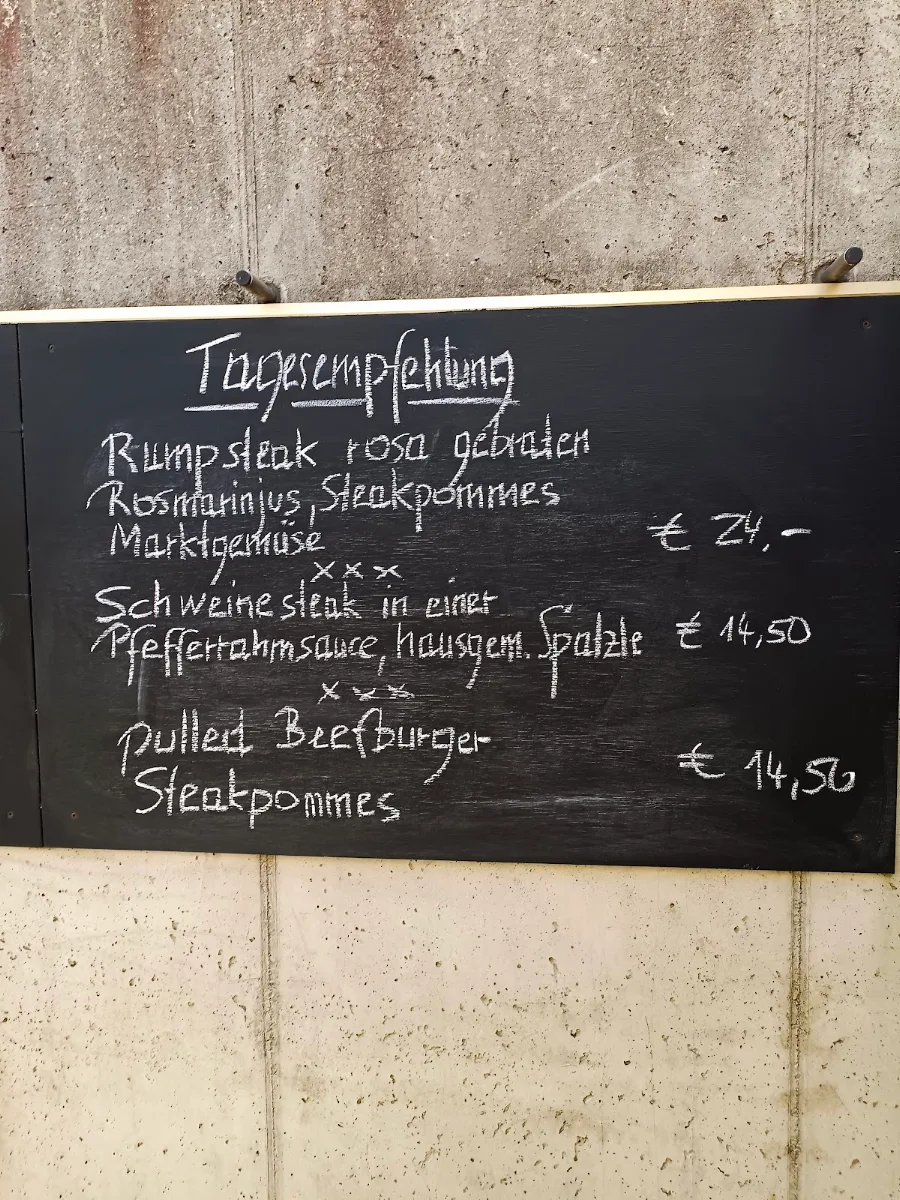 Tagesempfehlung
Rumpsteak rosa gebraten
Rosmarinjus, Steakpommes
Marktgemüse € 24,-
xxx
Schweinesteak in einer
Pfefferrahmsauce, hausgem. Spatzle € 14,50
xxx
pulled Beefburger
Steakpommes € 14,50